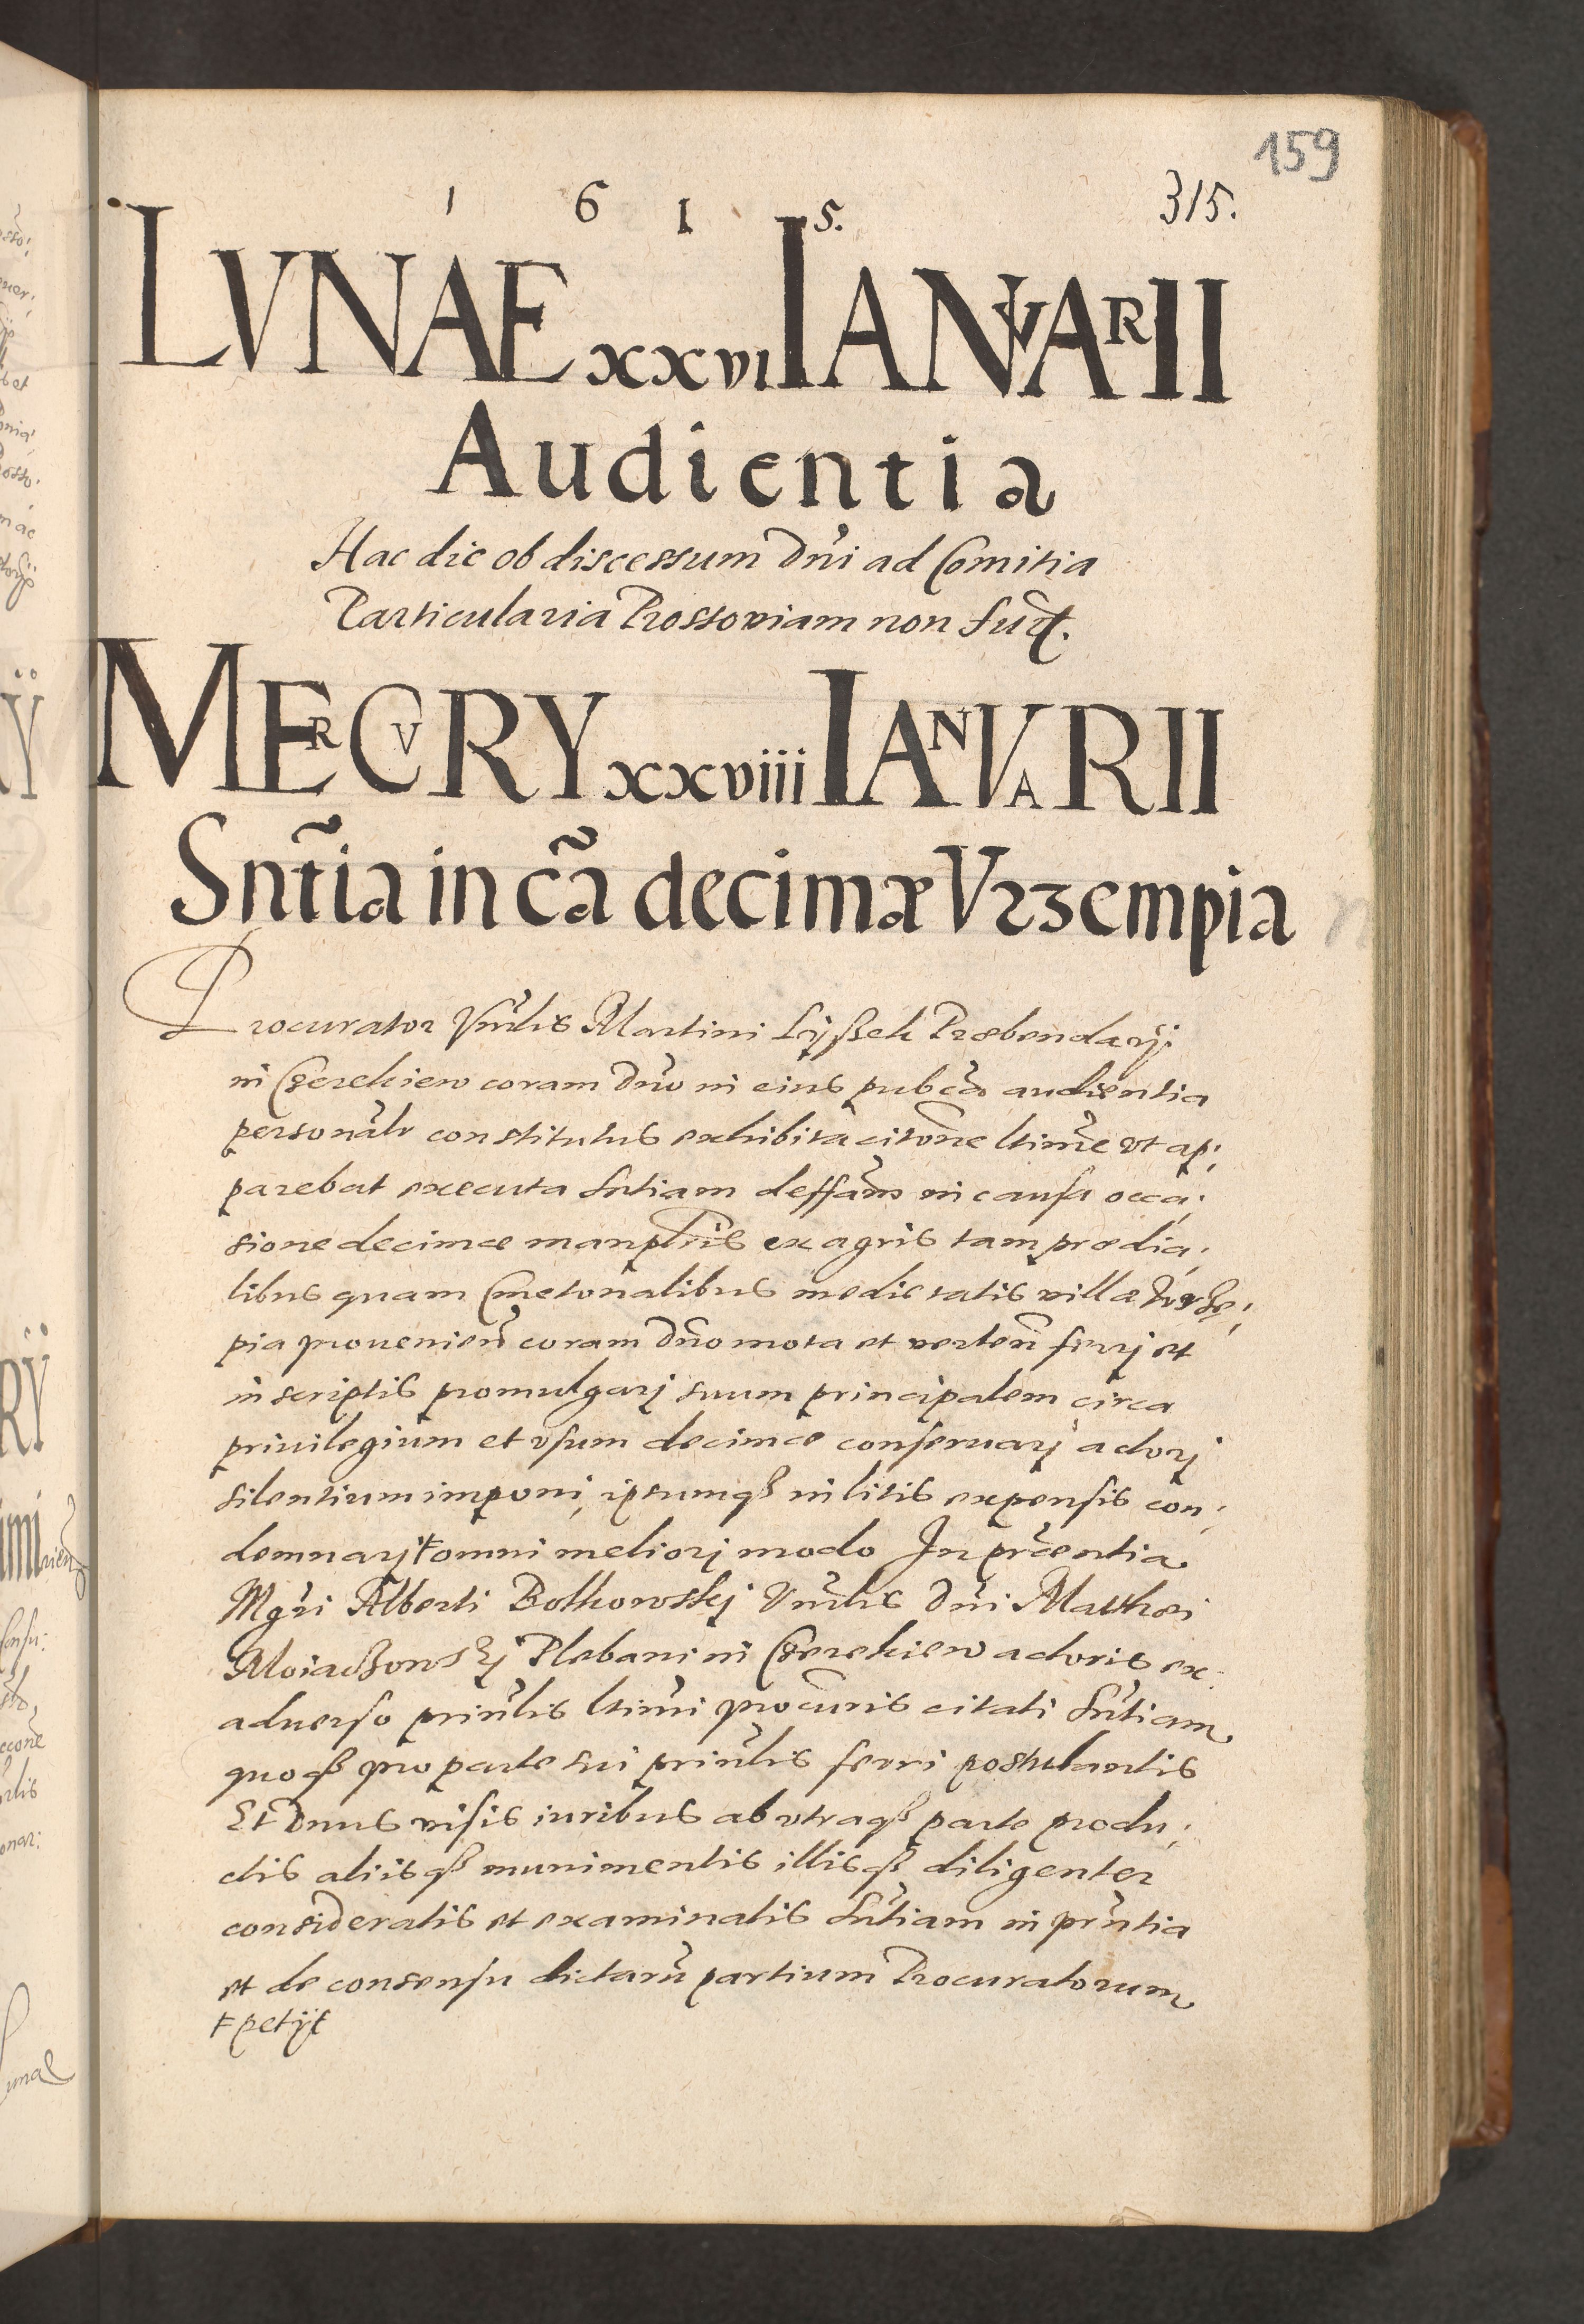 159
1 6 1 5.
315.
LVNAE xxvi IANVARII
Audientia
Hac die ob discessum Dni ad Comitia
Particularia Prossoviam non fuit.
MERCVRY xxviii IANVARII
Sntia in cã decimæ Vrzempia
Procurator Vnlis Martini Præbendarij
in Czerekiew coram Dno in eius pubca audientia
personalr constitutus exhibita citone ltime vt ap;
parebat executa sntiam deffam in causa occa;
sione decimæ manplris ex agris tam prædia;
libus quam Cmetonalibus medietatis villæ
pia provenien coram Dno mota et verten ferrj et
in scriptis promulgarj suum principalem circa
privilegium et vsum decimæ conservarj actorj
silentium imponi, ipsumqß in litis expensis con;
demnarj ŧ omni meliorj modo In præntia
Mgri Alberti Bolkowskj Vnlis Dni Matthæi
Plebani in Czerekiew actoris ex
adverso prinlis ltimi procuris citati sntiam
quoqß pro parte sui prinlis ferri postulantis
Et Dnus visis iuribus ab vtraqß parte produ;
ctis aliisqß munimentis illisqß diligenter
consideratis et examinatis sntiam in prntia
et de consensu dictaru partium Procuratorum
ŧ petijt